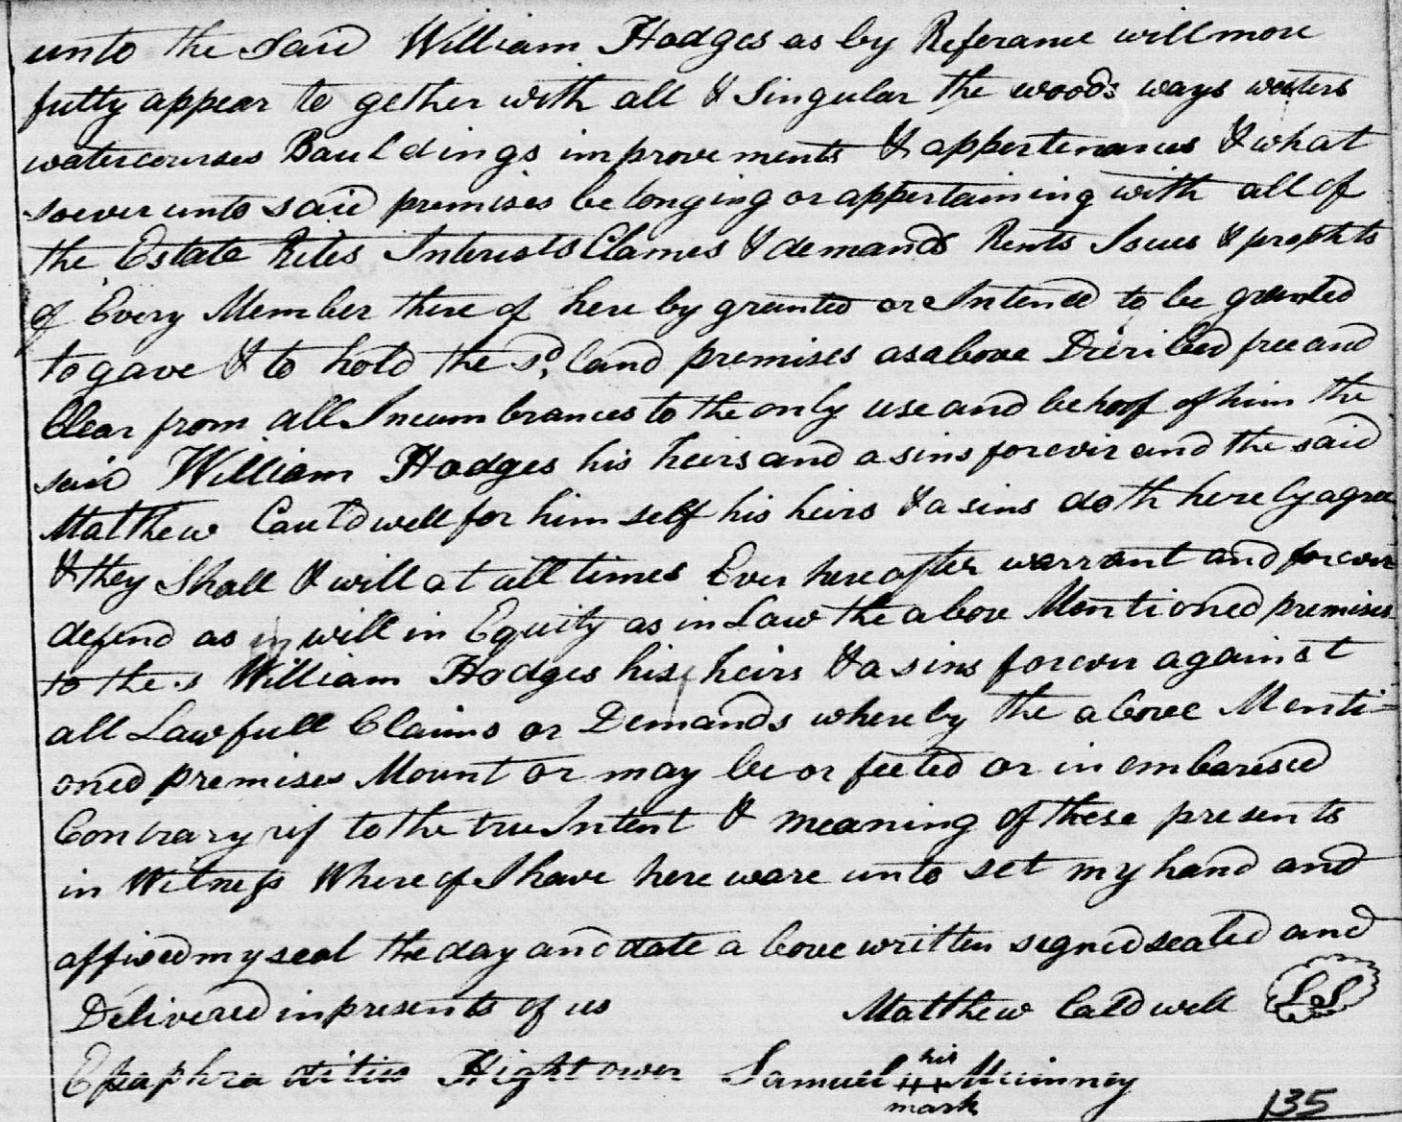 unto the Said William Hodges as by Referance will more
fully appear to gether with all & Singular the woods ways waters
watercourses Bauldings improvements & appertenances & what
soever unto said premises belonging or appertaining with all of
the Estate Rites Interists Clames & demands Rents Isues & prophts
of Every Member there of here by granted or Intended to be granted
to gave & to hold the sd. land premises as above Discribed free and
Clear from all Incumbrances to the only use and behoof of him the
said William Hodges his heirs and asins forevir and the said
Matthew Cauldwell for him self his heirs & asins doth here by agree
& they Shall & will at all times Ever hereafter warrant and forever
defend as in will in Equity as in Law the above Mentioned premises
to the s William Hodges his heirs & asins forever against
all Lawfull Claims or Demands whereby the above Menti=
oned premises Mount or may be or feeted or in embarised
Contrary rif to the true Intent & meaning of these presents
in Witness Where of I have here ware unto set my hand and
affixed my seal the day and date above written signed sealed and
Delivered in presents of us Matthew Caldwell LS
Epaphraditius Hightower Samuel his mark McKinney
135